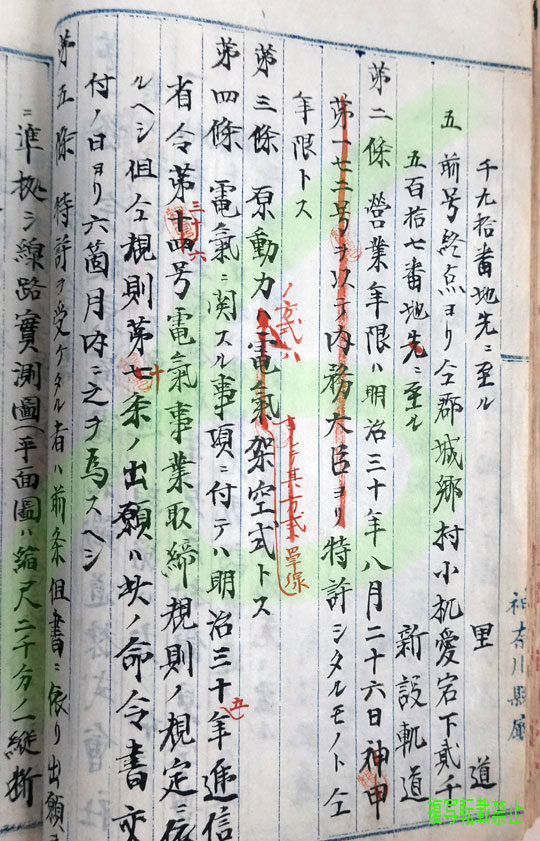 千九拾番地先ニ至ル 里道
五 前号終点ヨリ仝郡城郷村小机愛宕下貳千
五百拾七番地先ニ至ル 新設軌道
第二條 營業年限ハ明治三十年八月二十六日神甲
第一七二号ヲ以テ内務大臣ヨリ特許シタルモノト仝
年限トス
第三條 原動力ハ電氣架空式トス
ノ方式ハ
單線
第四條 電氣ニ関スル事項ニ付テハ明治三十年逓信
五
省令第十四号電氣事業取締規則ノ規定ニ依
三十六
ルヘシ但仝規則第七条ノ出願ハ此ノ命令書交
十
付ノ日ヨリ六箇月内ニ之ヲ爲スヘシ
第五條 特許ヲ受ケタル者ハ前条但書ニ依リ出願
ニ準拠シ線路實測圖(平面圖ハ縮尺二千分ノ一縦断
神奈川縣廳
複写転載禁止